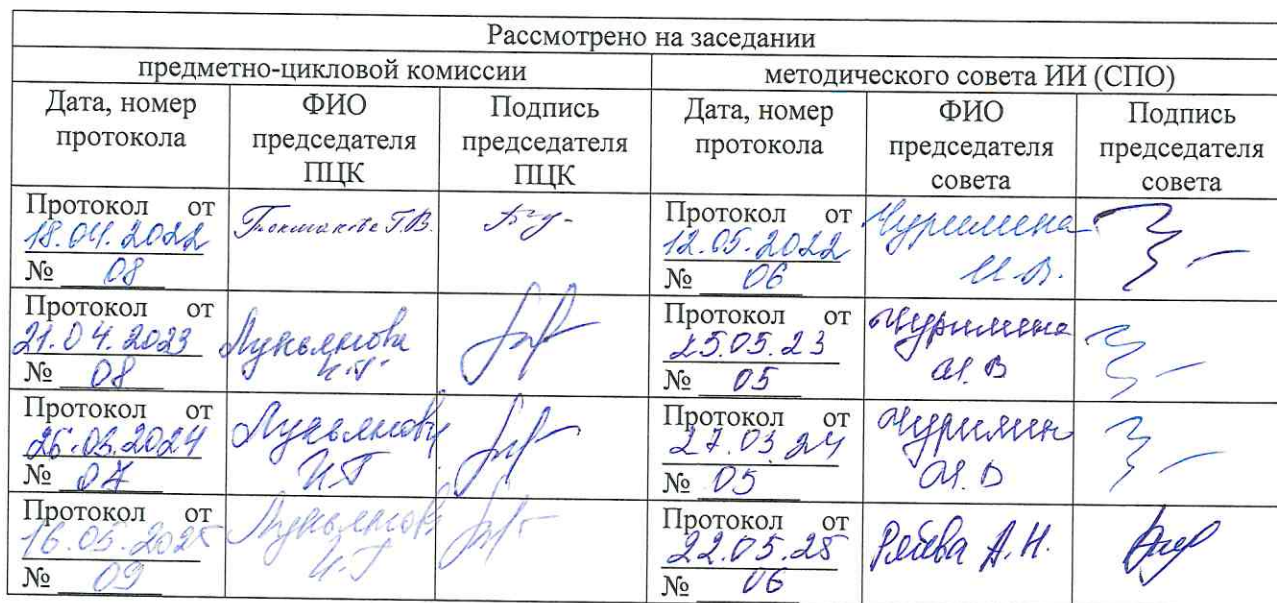 Рассмотрено на заседании
предметно-цикловой комиссии
методического совета ИИ (СПО)
Дата, номер
протокола
ФИО
председателя
ПЦК
Подпись
председателя
ПЦК
Дата, номер
протокола
ФИО
председателя
совета
Подпись
председателя
совета
Протокол от
18.04.2022
№ 08
Токмакова Г.В.
Протокол от
12.05.2022
№ 06
Чуримина
И.В.
Протокол от
21.04.2023
№ 08
Лукьянова
И.Г.
Протокол от
25.05.23
№ 05
Чуримина
И.В
Протокол от
26.03.2024
№ 07
Лукьянова
И.Г
Протокол от
27.03.24
№ 05
И.В
Протокол от
16.05.2025
№ 09
Лукьянова
И.Г
Протокол от
22.05.25
№ 06
А.Н.